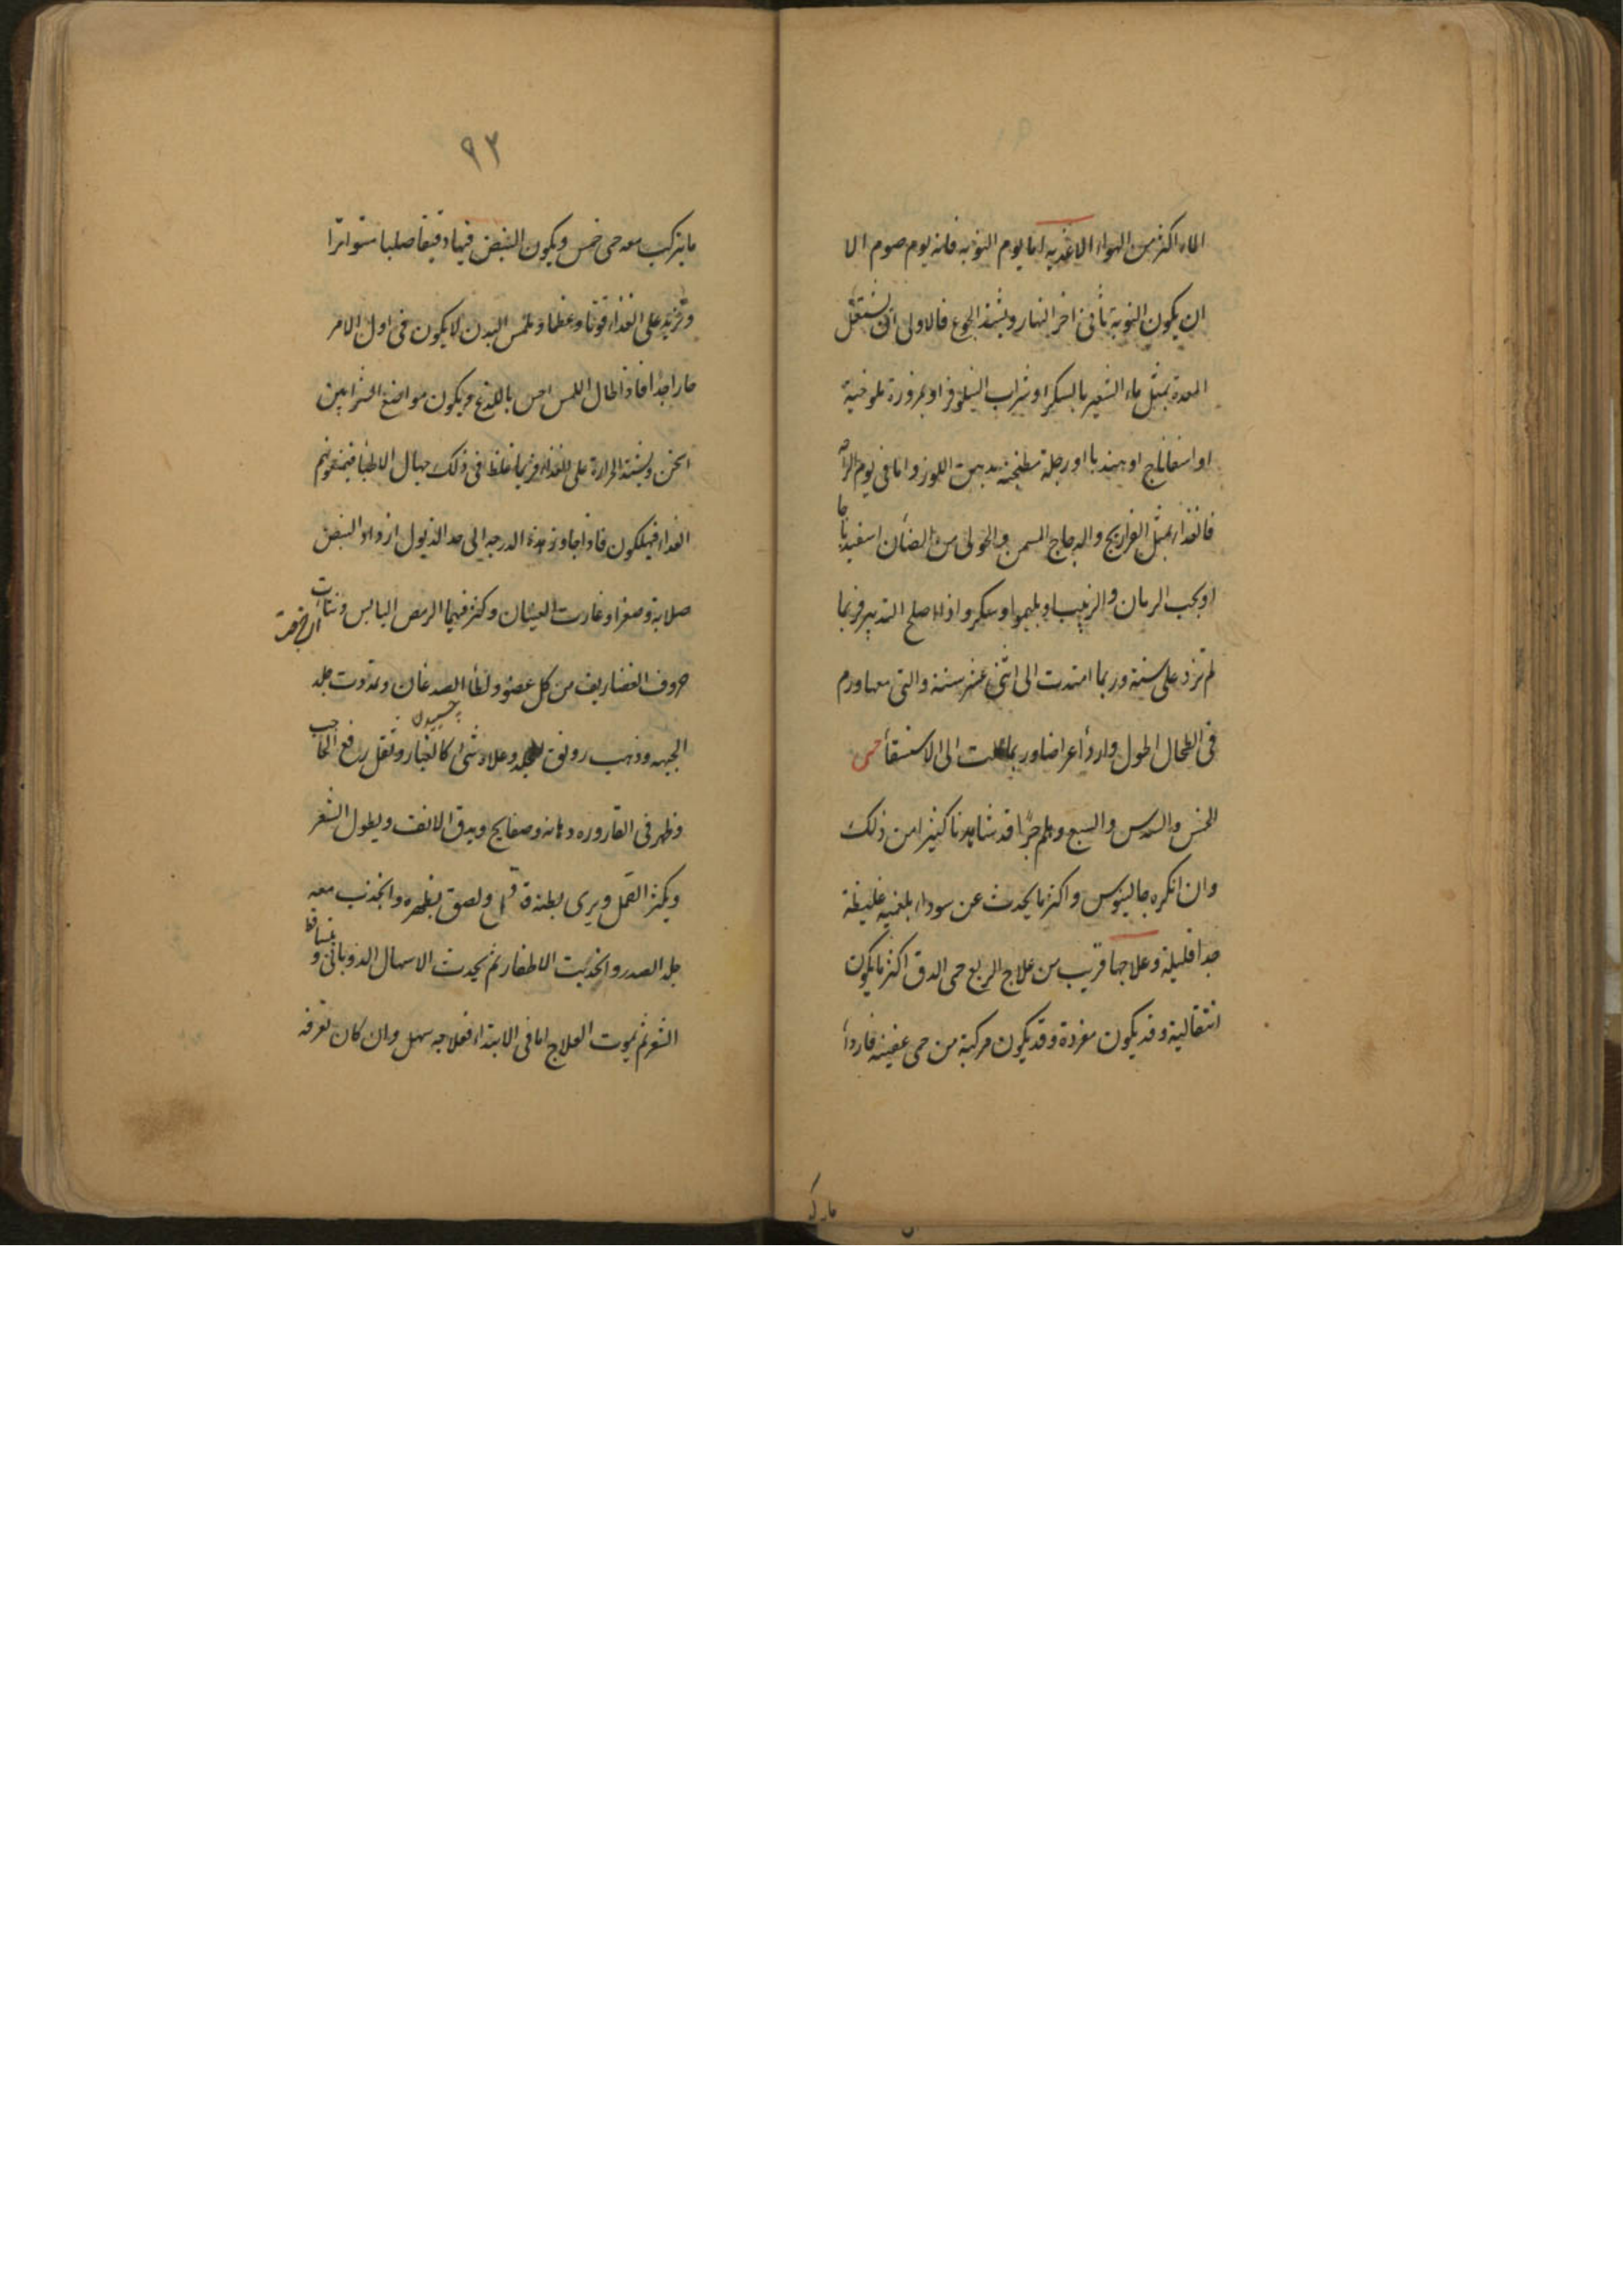 الماء اكثر من الهواء الاغذيه اما يوم النوبه فانه يوم صوم الا
ان يكون النوبة تأتى اخر النهار ويشتد الجوع فالاولى ان تشتغل
المعدة بمثل ماء الشعير بالسكر او شراب النيلوفر او بمزورة ملوخية
او اسفاناج او هندبا او رجلة مطنجنه بدهن اللوز واما فى يوم الراحه
فالغذاء بمثل الفراريج والدجاج المسمن والحولى من الضأن اسفيدباجا
او بحب الرمان والزبيب او بليمو او سكر واذا اصلح التدبير فربما
لم تزد على سنة وربما امتدت الى اثنى عشر سنة والتى معها ورم
فى الطحال اطول واردأ اعراضا وربما الت الى الاستسقأ حمى
الخمس والسدس والسبع وهلم جرّا قد شاهدنا كثيرا من ذلك
وان انكره جالينوس واكثر ما يحدث عن سوداء بلغميه غليظة
جدا قليلة وعلاجها قريب من علاج الربع حمى الدق اكثر ما يكون
انتقالية وقد يكون مفردة وقد يكون مركبة من حمى عفنيه فاردأ
مارك
٩٣
ما يتركب معه حى خمس ويكون النبض فيها دقيقا صلبا متواترا
وتزيد على الغذاء قوتا وعظما وملمس البدن لا يكون فى اول الامر
حارا جدا فاذا طال اللمس احس باللذع ويكون مواضع الشرايين
اسخن ويشتد الحرارة على الغذاء فربما غلط فى ذلك جهال الاطبا فيمنعونهم
الغذاء فيهلكون فاذا جاوز هذه الدرجه الى حد الذبول ازداد النبض
صلابة وصغرا وغارت العينان وكثر فيهما الرمص اليابس ونتأت
اى خرجت
حروف الغضاريف من كل عضو ولطأ الصدغان وتمددت جلد
چسپيدن
الجبهه وذهب رونق الجلد وعلاه شئ كالغبار وثقل رفع الحاجب
وظهر فى القاروره دهانه وصفايح ويدق الانف ويطول الشعر
ويكثر القمل ويرى بطنه قد قحل ولصق بظهره وانجذب معه
جلد الصدر وانحنيت الاظفار ثم يحدث الاسهال الذوبانى و يتساقط
الشعر ثم يموت العلاج اما فى الابتداء فعلاجه سهل وان كان تعرفه